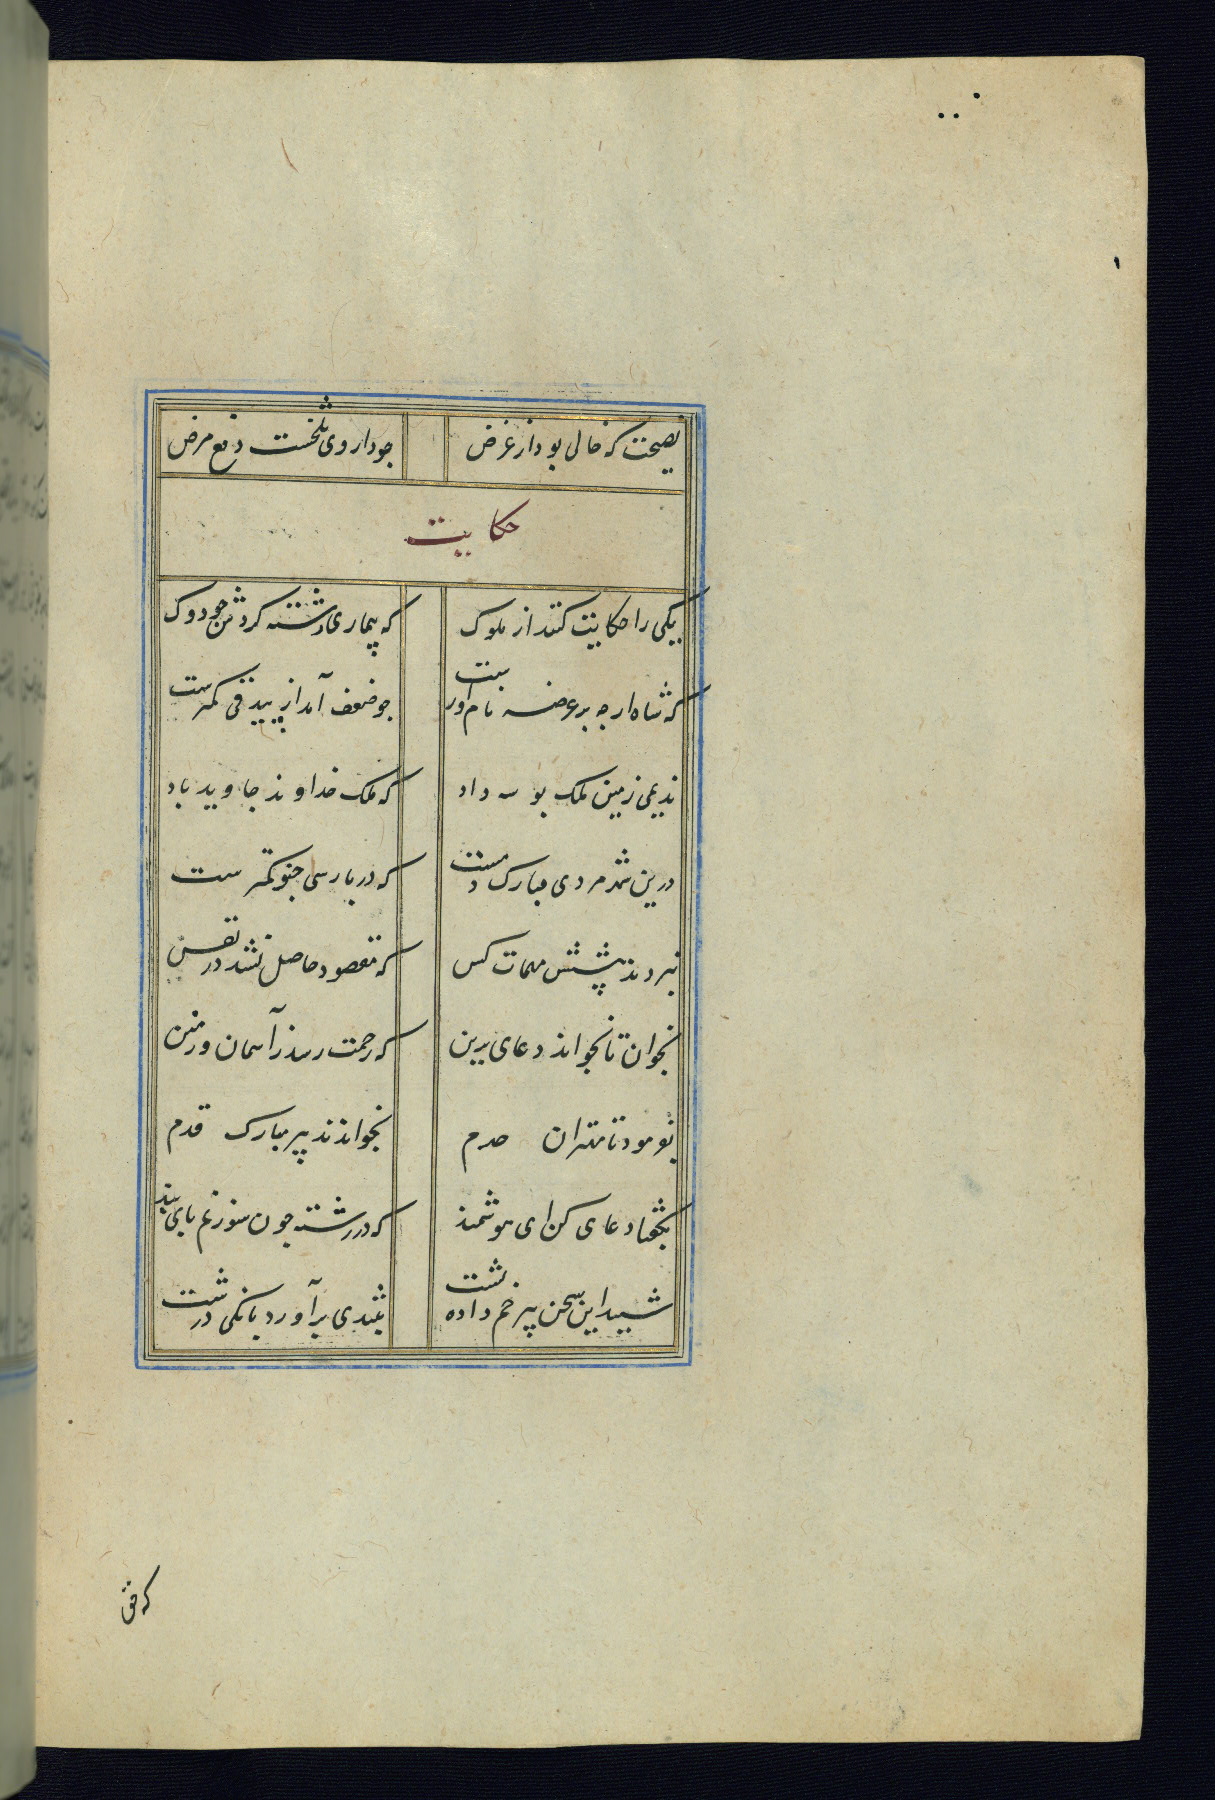 نصیحت که خالی بود از غرض جو داروی تلخست دفع مرض
حکایت
یکی را حکایت کنند از ملوک که بیماری رشته کردش جو دوک
که شاه ارجه بر عرصه نام آورست جو ضعف آمد از بیدقی کمترست
ندیمی زمین ملک بوسه داد که ملک خداوند جاوید باد
درین شهر مردی مبارک دمست که در بارسی جنو کمترست
نبردند پیشش مهمات کس که مقصود حاصل نشد در نفس
بخوان تا بخواند دعای برین که رحمت رسد زآسمان و زمین
بفرمود تا مهتران خدم بخواندند پیر مبارک قدم
بگفتا دعای کن ای هوشمند که در رشته جون سوزنم بای بند
شنید این سخن پیر خم داده پشت بتندی برآورد بانگی درشت
که حق